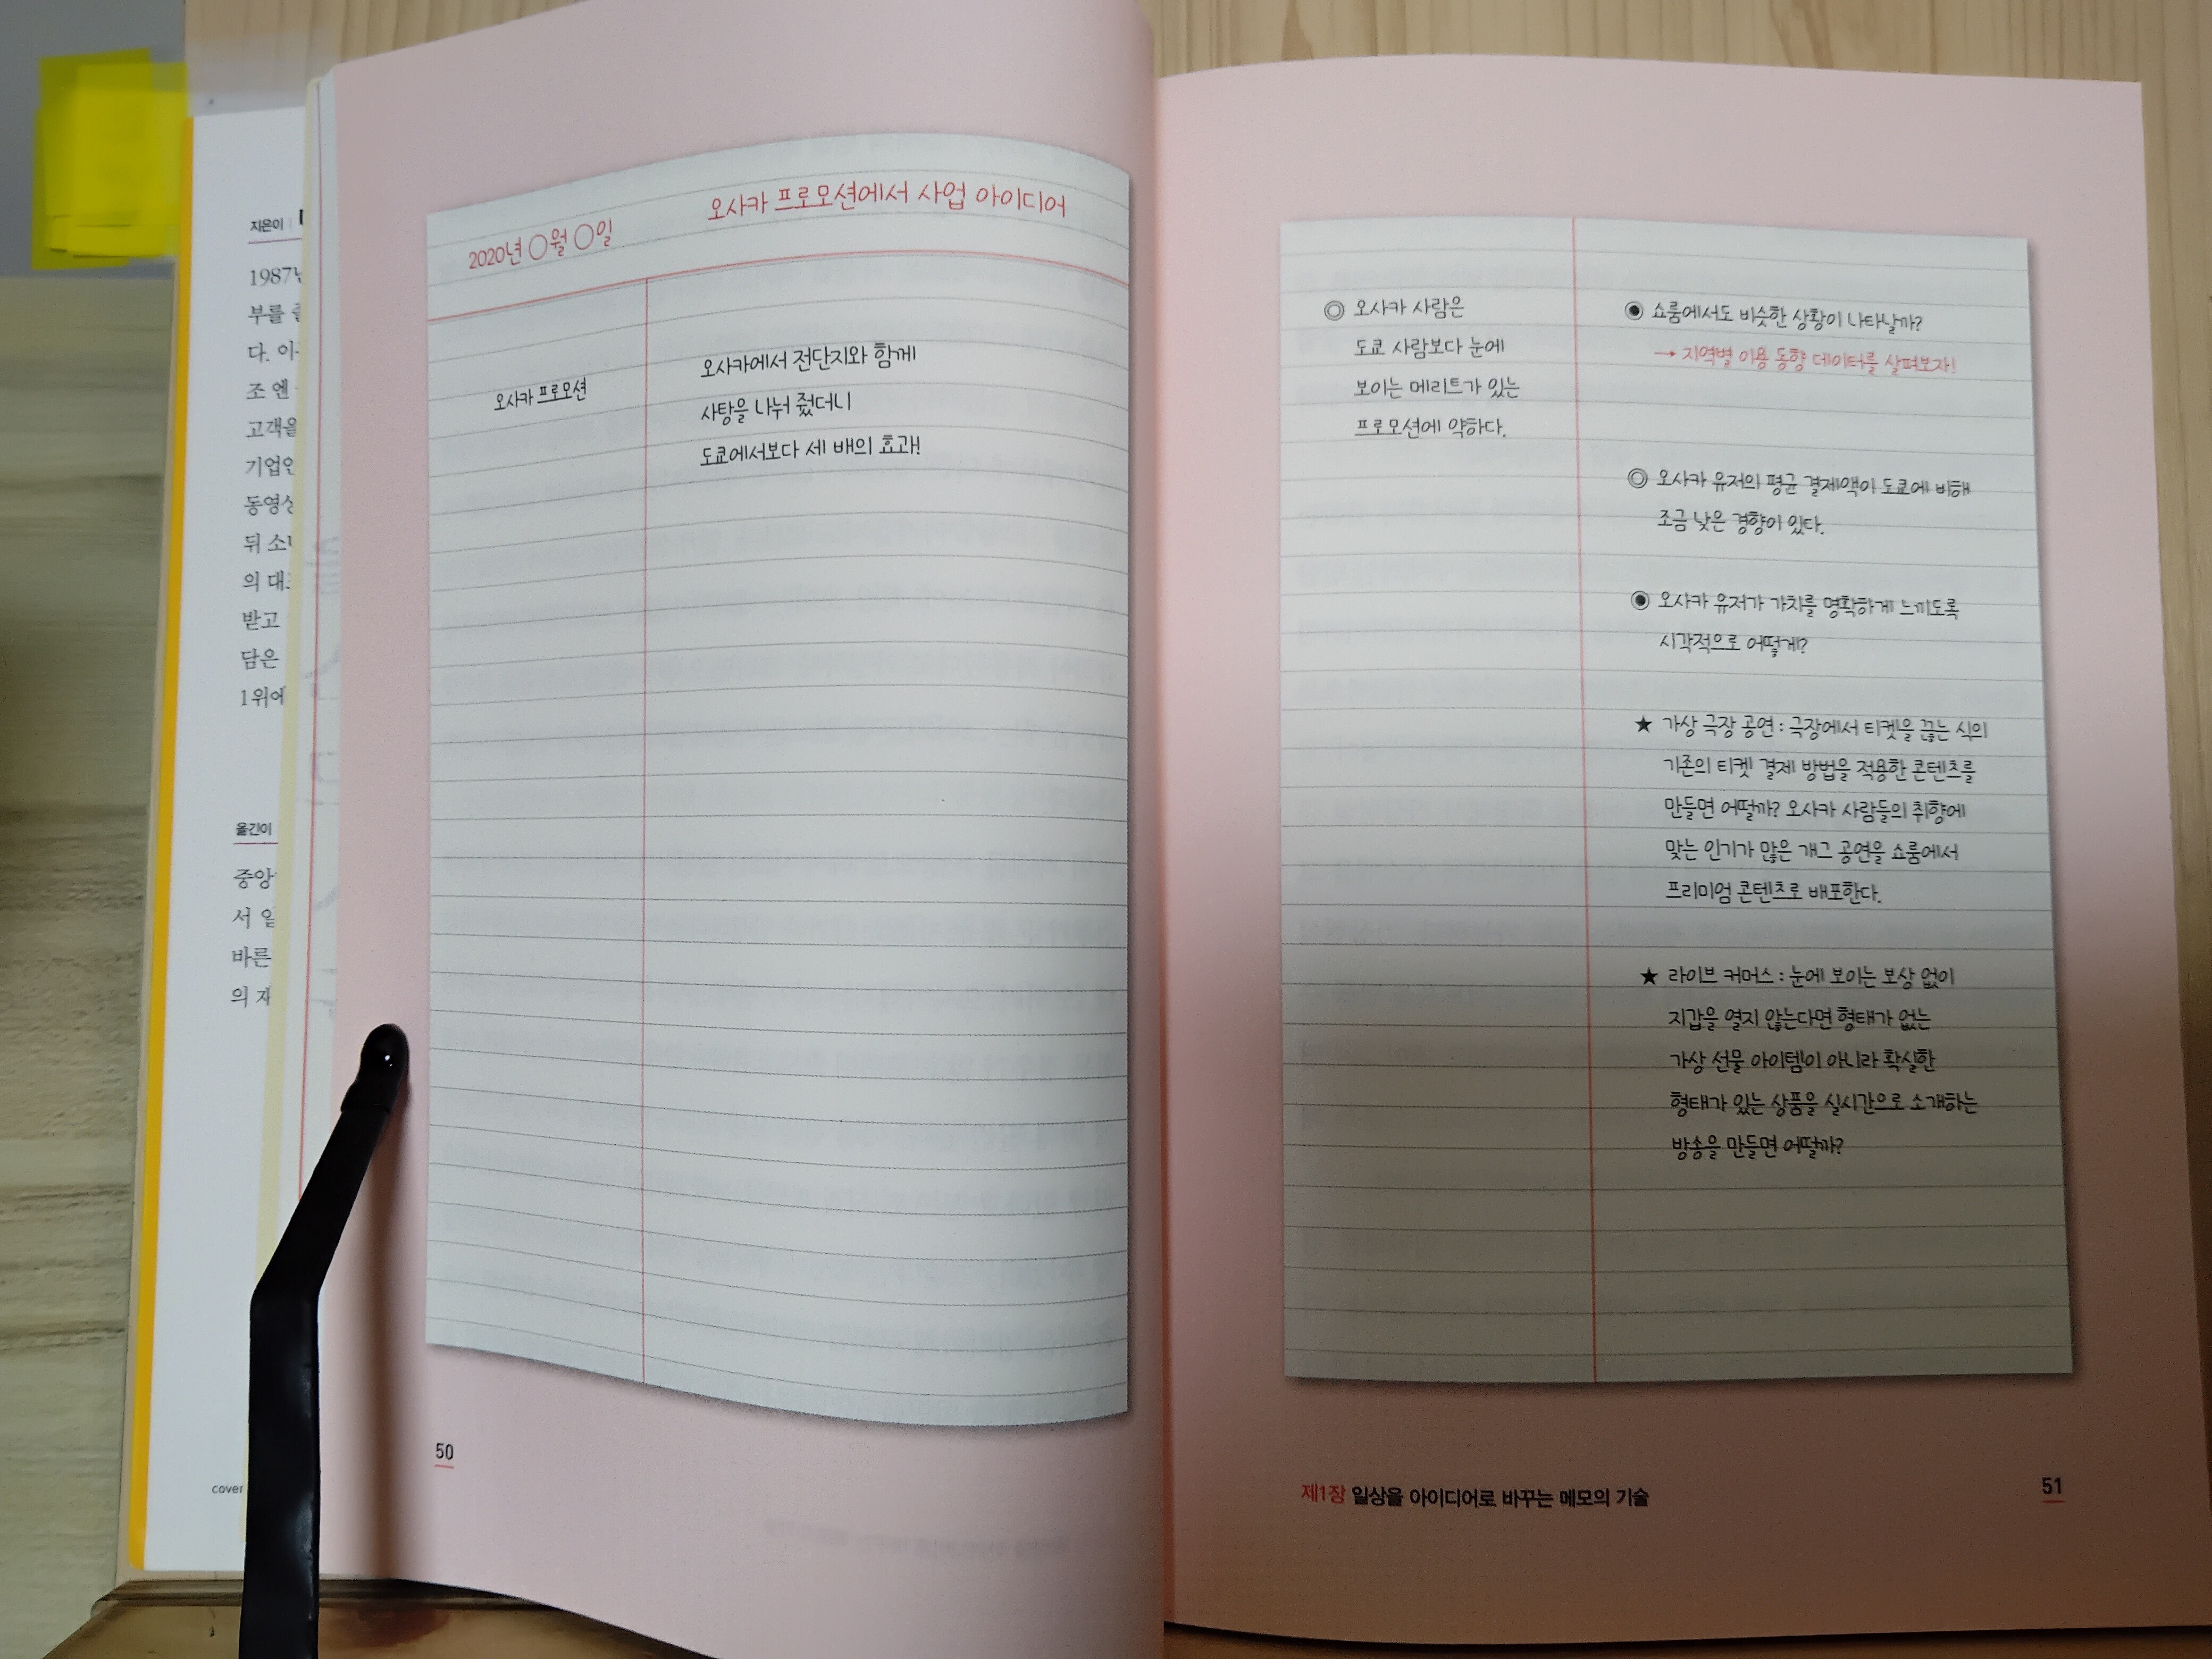 지은이
1987년
부를 졸
다. 이
조 엔
고객을
기업인
동영상
뒤 소니
의 대표
받고
담은
1위에
옮긴이
중앙
서 일
바른
의 재
cover
2020년 ○월 ○일
오사카 프로모션에서 사업 아이디어
오사카 프로모션
오사카에서 전단지와 함께
사탕을 나눠 줬더니
도쿄에서보다 세 배의 효과!
50
◎ 오사카 사람은
도쿄 사람보다 눈에
보이는 메리트가 있는
프로모션에 약하다.
◉ 쇼룸에서도 비슷한 상황이 나타날까?
→ 지역별 이용 동향 데이터를 살펴보자!
◎ 오사카 유저의 평균 결제액이 도쿄에 비해
조금 낮은 경향이 있다.
◉ 오사카 유저가 가치를 명확하게 느끼도록
시각적으로 어떻게?
★ 가상 극장 공연 : 극장에서 티켓을 끊는 식의
기존의 티켓 결제 방법을 적용한 콘텐츠를
만들면 어떨까? 오사카 사람들의 취향에
맞는 인기가 많은 개그 공연을 쇼룸에서
프리미엄 콘텐츠로 배포한다.
★ 라이브 커머스 : 눈에 보이는 보상 없이
지갑을 열지 않는다면 형태가 없는
가상 선물 아이템이 아니라 확실한
형태가 있는 상품을 실시간으로 소개하는
방송을 만들면 어떨까?
제1장 일상을 아이디어로 바꾸는 메모의 기술
51